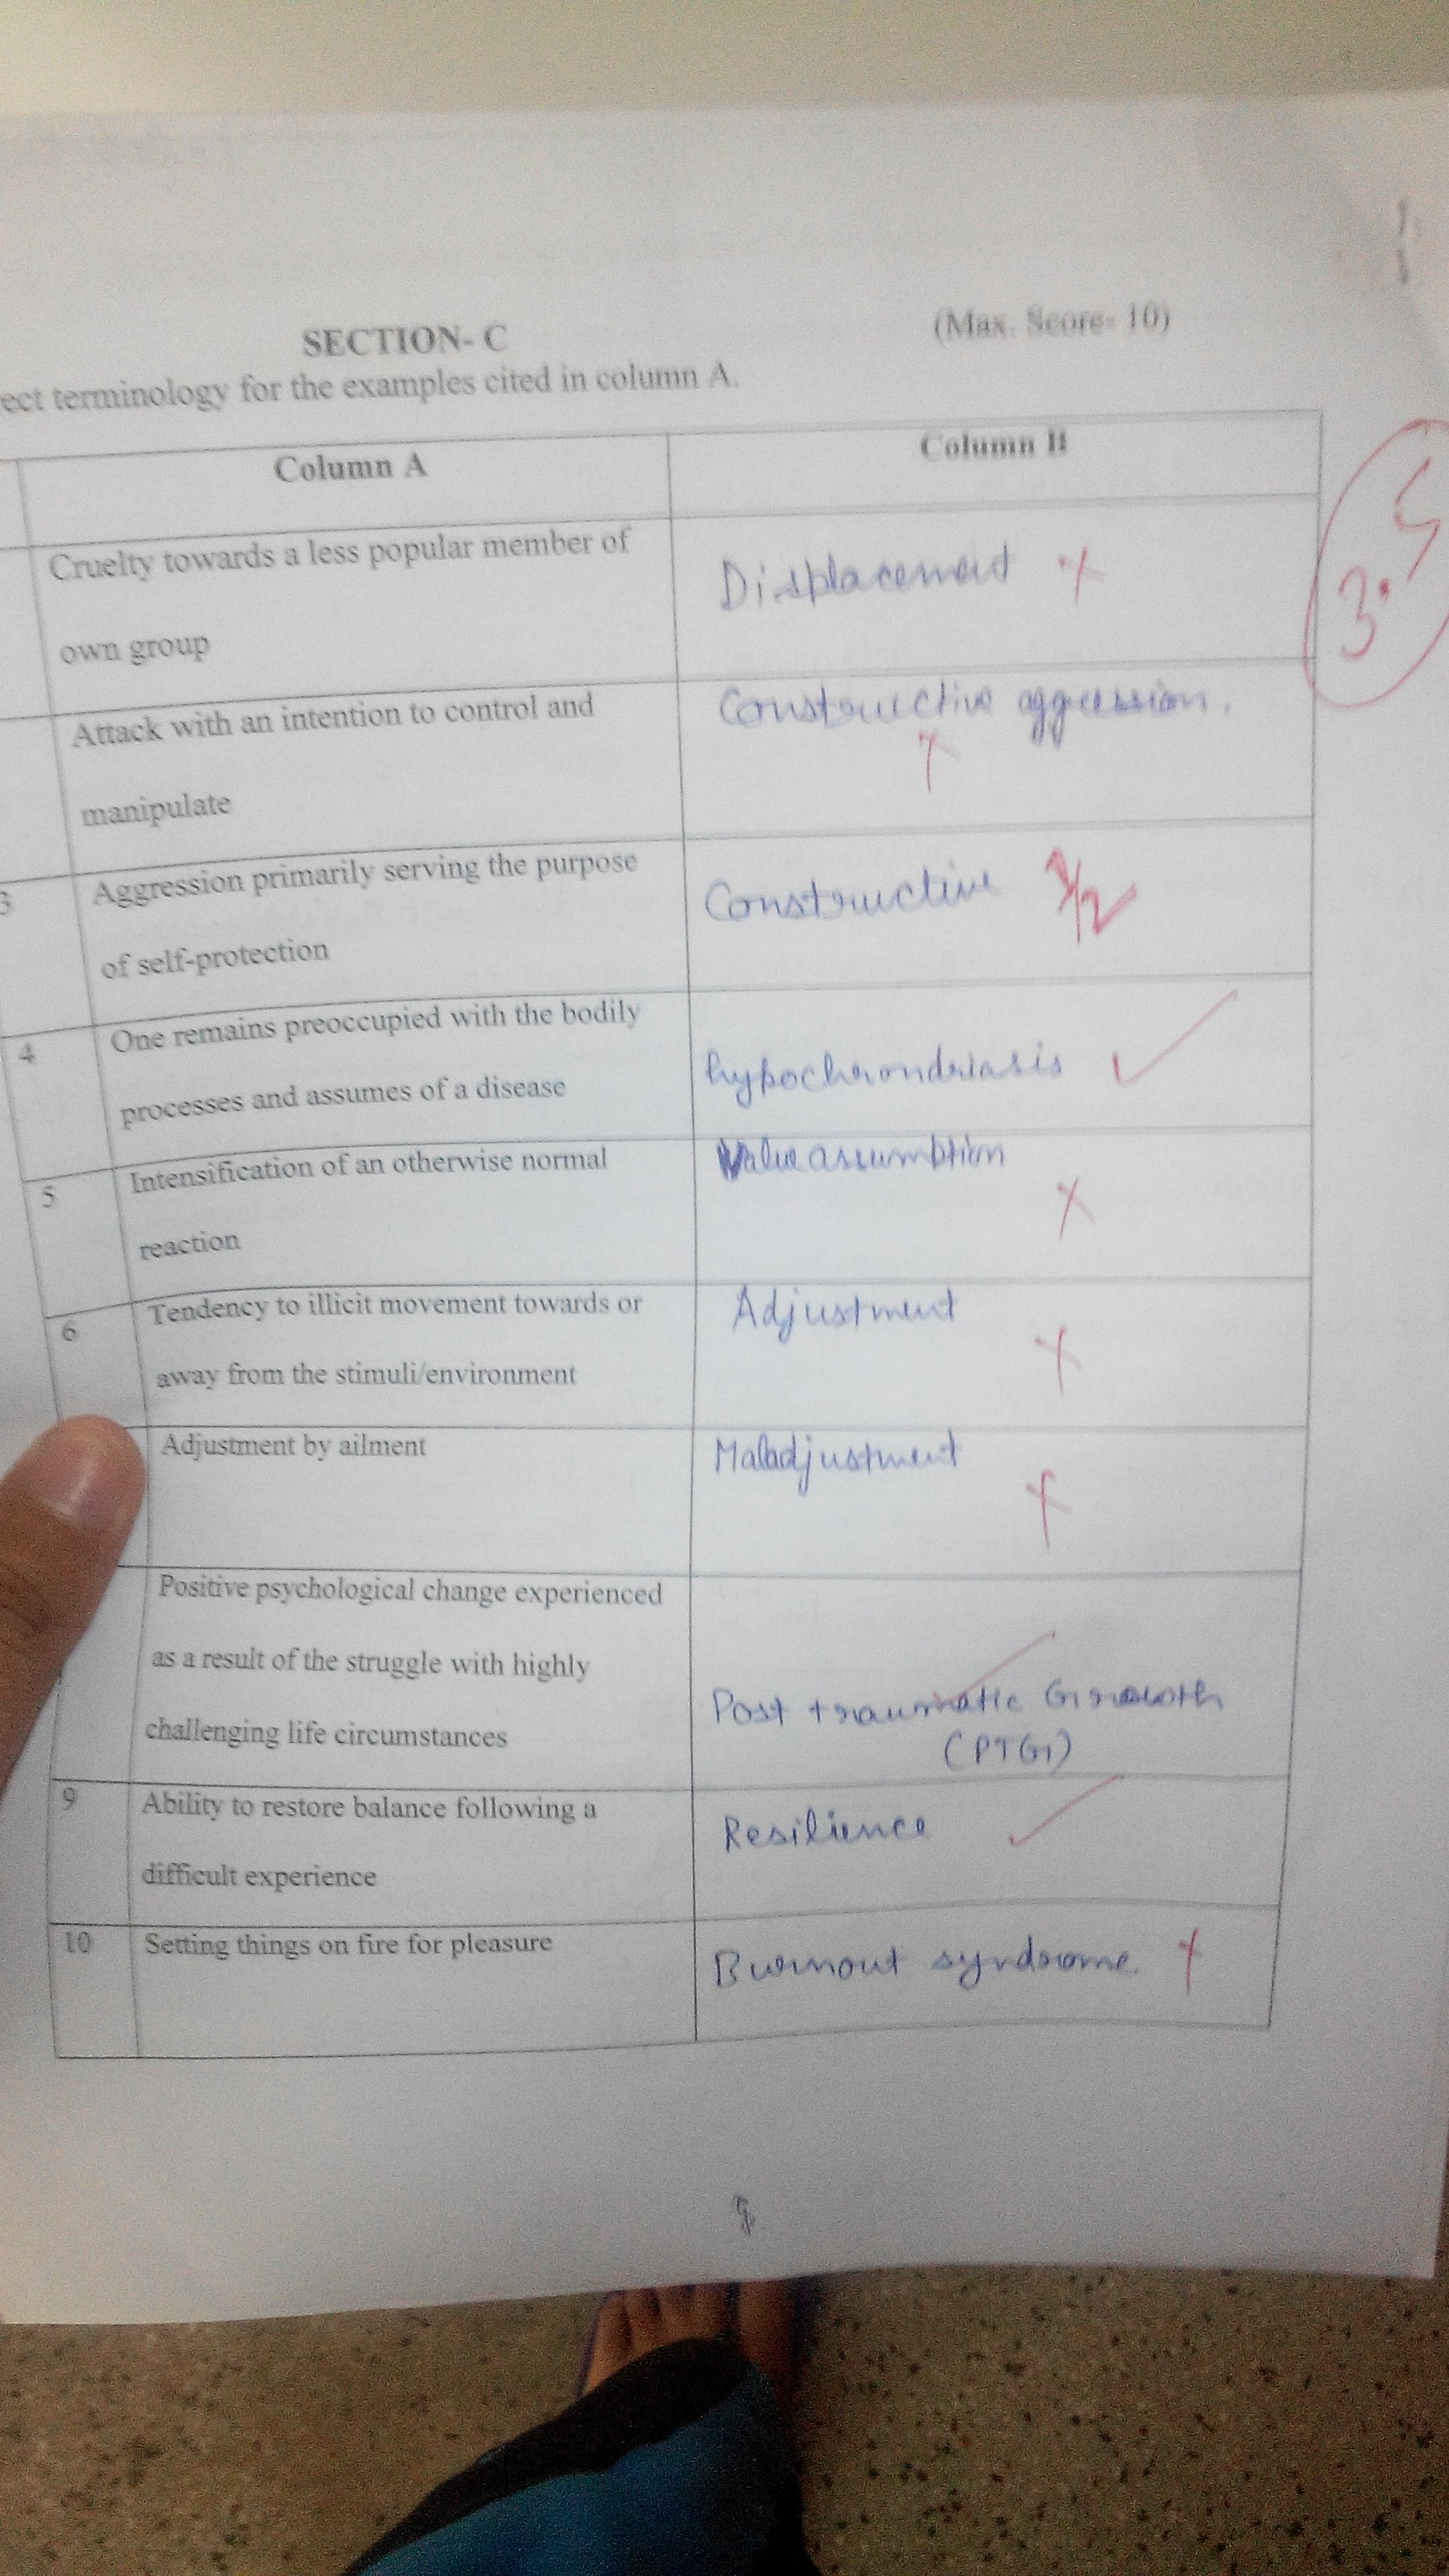 SECTION- C
(Max. Score- 10)
ect terminology for the examples cited in column A.
Column A
Column B
Cruelty towards a less popular member of
own group
Displacement x
3.5
Attack with an intention to control and
manipulate
Constructive aggression. x
3
Aggression primarily serving the purpose
of self-protection
Constructive 1/2
4
One remains preoccupied with the bodily
processes and assumes of a disease
hypochrondriasis ✓
5
Intensification of an otherwise normal
reaction
Value assumption
x
6
Tendency to illicit movement towards or
away from the stimuli/environment
Adjustment
x
Adjustment by ailment
Maladjustment
x
Positive psychological change experienced
as a result of the struggle with highly
challenging life circumstances
Post traumatic Growth
(PTG)
9
Ability to restore balance following a
difficult experience
Resilience ✓
10
Setting things on fire for pleasure
Burnout syndrome. x